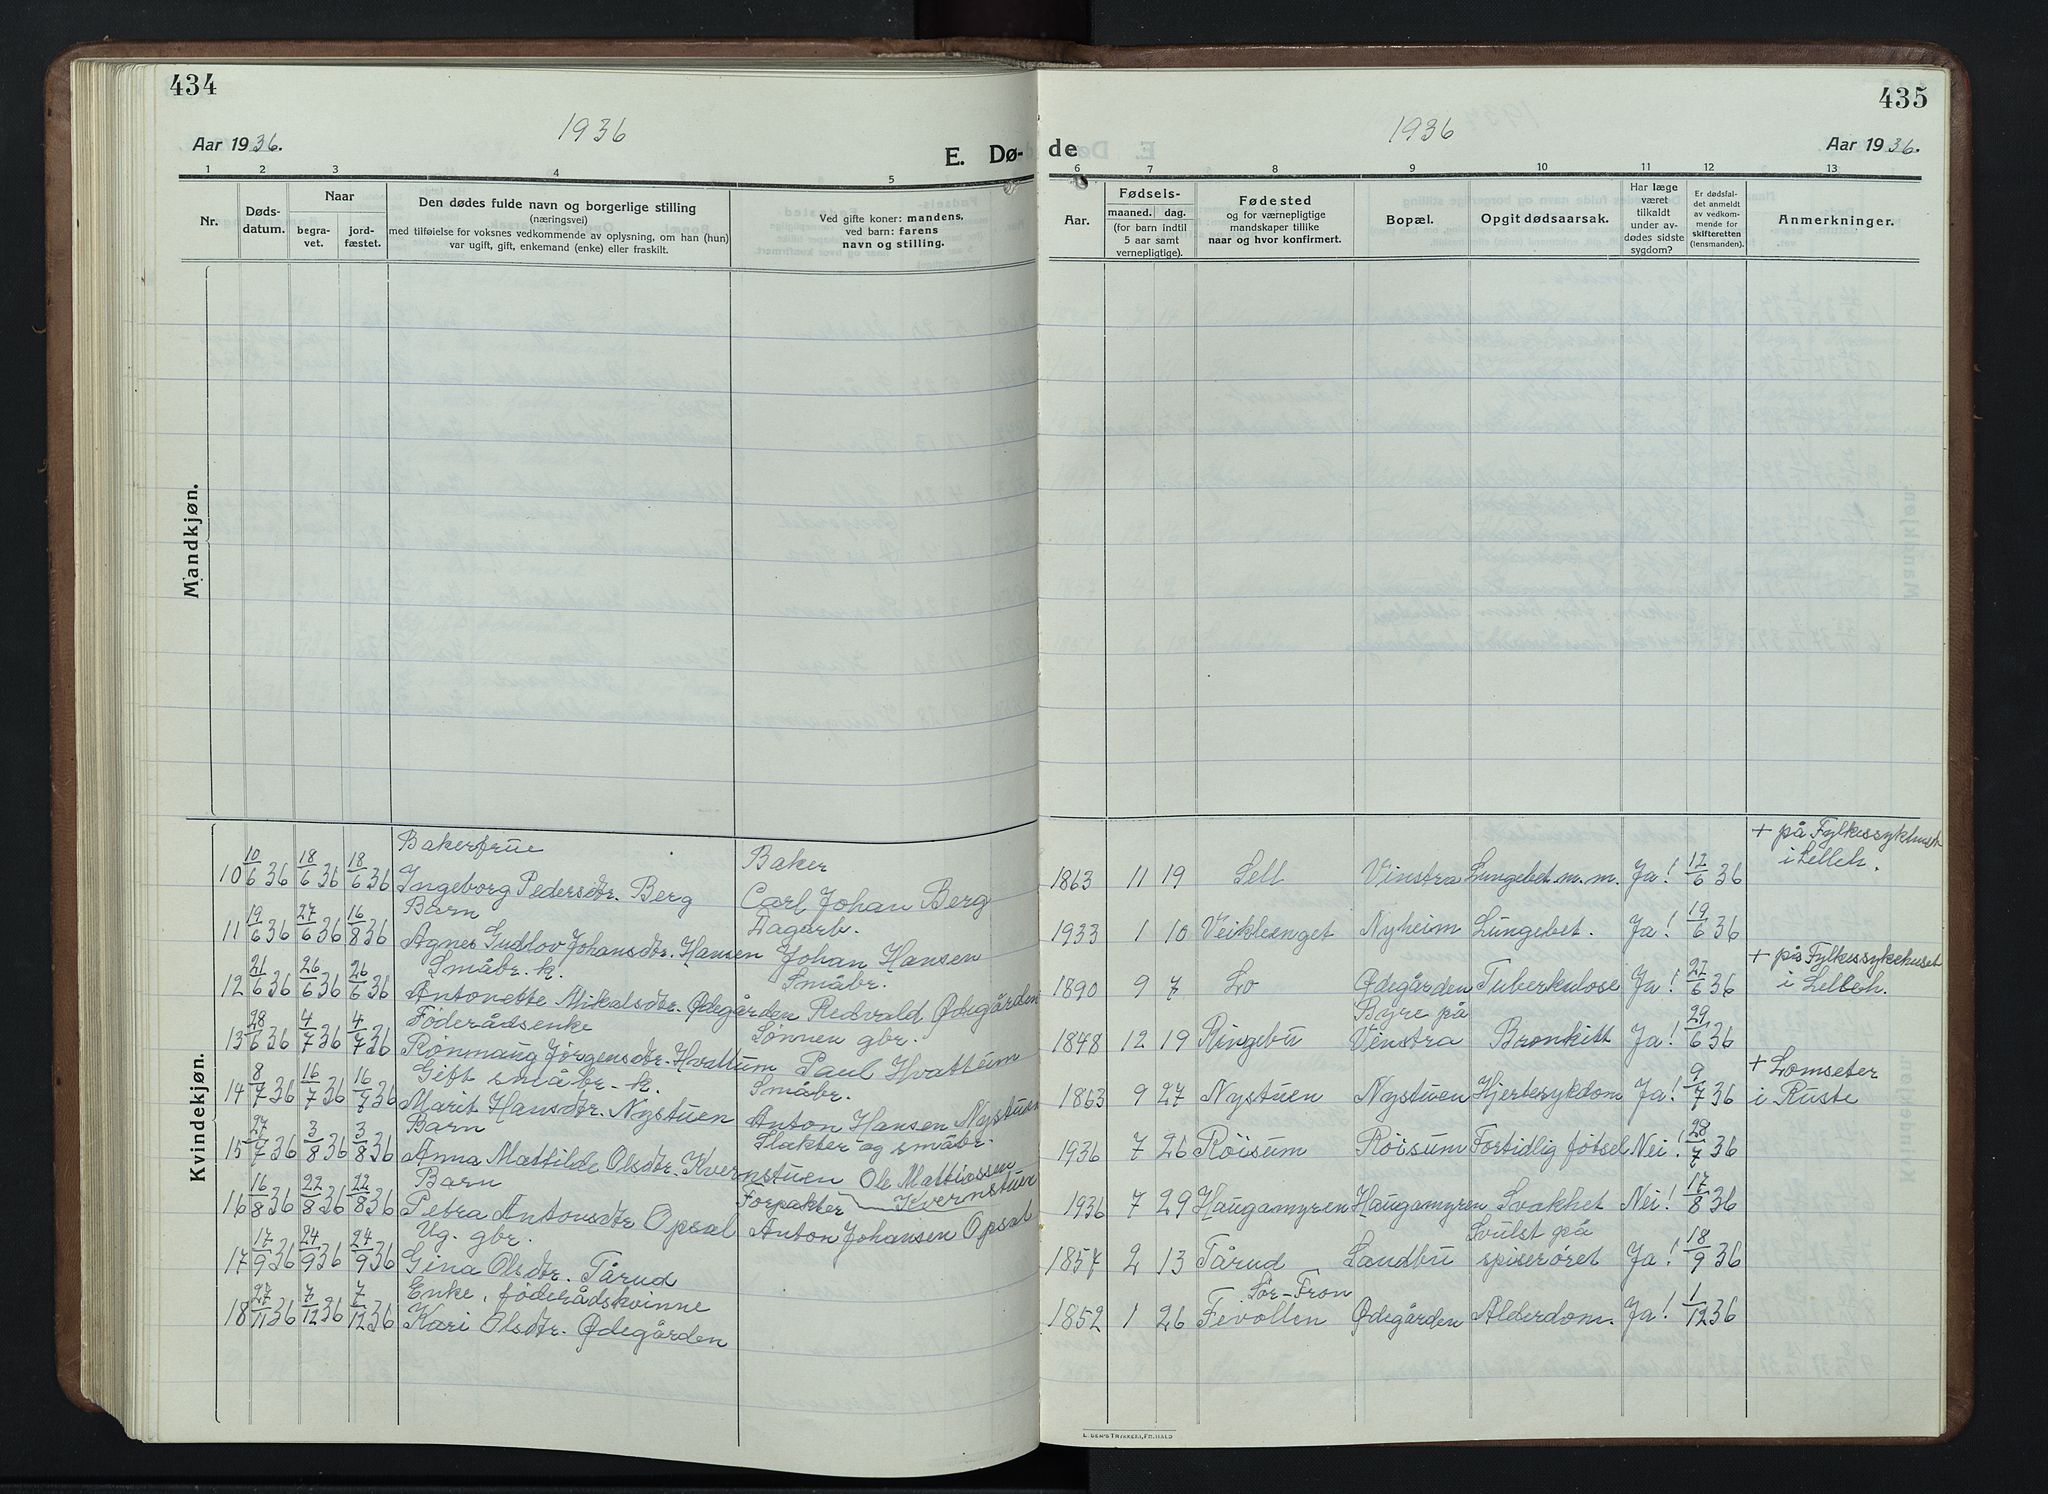 434
1936
Aar 1936.
E. Dø-
1 2 3 4 5
Nr.
Døds-
datum.
Naar
begra-
vet.
jord-
fæstet.
Den dødes fulde navn og borgerlige stilling
(næringsvei)
med tilføielse for voksnes vedkommende av oplysning, om han (hun)
var ugift, gift, enkemand (enke) eller fraskilt.
Ved gifte koner: mandens,
ved barn: farens
navn og stilling.
Mandkjøn.
Kvindekjøn.
Bakerfrue Baker
10 10/6 36 18/6 36 18/6 36 Ingeborg Pedersdtr. Berg Carl Johan Berg
Barn Dagarb.
11 19/6 36 27/6 36 16/8 36 Agnes Gudlov Johansdtr. Hansen Johan Hansen
Småbr. k. Småbr.
12 21/6 36 26/6 36 26/6 36 Antonette Mikalsdtr. Ødegården Redvald Ødegården
Føderådsenke Sønnen gbr.
13 28/6 36 4/7 36 4/7 36 Rønnaug Jørgensdtr. Hvattum Paul Hvattum
Gift småbr. k. Småbr.
14 8/7 36 16/7 36 16/7 36 Marit Hansdtr. Nystuen Anton Hansen Nystuen
Barn Slakter og småbr.
15 27/7 36 3/8 36 3/8 36 Anna Mattilde Olsdtr. Kvernstuen Ole Mattiassen
Kvernstuen
Barn Forpakter
16 16/8 36 22/8 36 22/8 36 Petra Antonsdtr Opsal Anton Johansen Opsal
Ug. gbr.
17 17/9 36 24/9 36 24/9 36 Gina Olsdtr. Tårud
Enke, føderådskvinne
18 27/11 36 7/12 36 7/12 36 Kari Olsdtr. Ødegården
435
1936
Aar 1936.
de
6 7 8 9 10 11 12 13
Aar.
Fødsels-
maaned. dag.
(for barn indtil
5 aar samt
vernepligtige).
Fødested
og for værnepligtige
mandskaper tillike
naar og hvor konfirmert.
Bopæl.
Opgit dødsaarsak.
Har læge
været
tilkaldt
under av-
dødes sidste
sygdom?
Er dødsfal-
det anmeldt
av vedkom-
mende for
skifteretten
(lensmanden).
Anmerkninger.
+ på Fylkessykehuset
i Lilleh.
1863 11 19 Sell Vinstra Lungebet. m. m. Ja! 12/6 36
1933 1 10 Veikleenget Nyheim Lungebet. Ja! 19/6 36
+ på Fylkessykehuset
i Lilleh.
1890 9 7 Lo Ødegården Tuberkulose Ja! 22/6 36
Byre på
1848 12 19 Ringebu Vinstra Bronkitt Ja! 29/6 36
+ Lomseter
i Ruste
1863 9 27 Nystuen Nystuen Hjertesykdom Ja! 9/7 36
1936 7 26 Røisum Røisum Fortidlig fötsel Nei! 28/7 36
1936 7 29 Haugamyren Haugamyren Svakhet Nei! 17/8 36
Svulst på
1857 2 13 Tårud Sandbu spiserøret Ja! 18/9 36
Sør-Fron
1852 1 26 Fevollen Ødegården Alderdom. Ja! 1/12 36